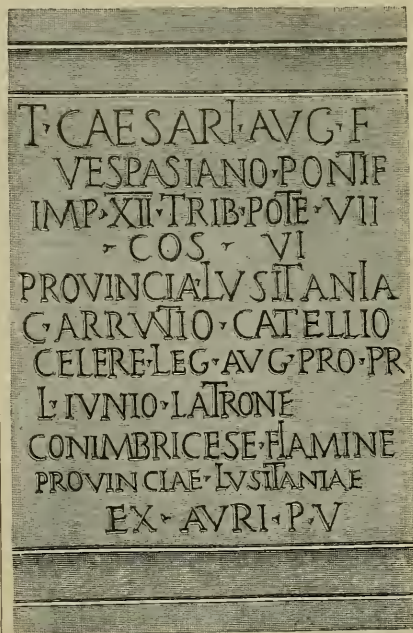 T·CAESARI·AVG·F
VESPASIANO·PONTIF
IMP·XII·TRIB·POTE·VII
·COS· VI
PROVINCIA·LVSITANIA
C·ARRVNTIO·CATELLIO
CELERE·LEG·AVG·PRO·PR
L·IVNIO·LATRONE
CONIMBRICESE·FLAMINE
PROVINCIAE·LVSITANIAE
EX·AVRI·P·V